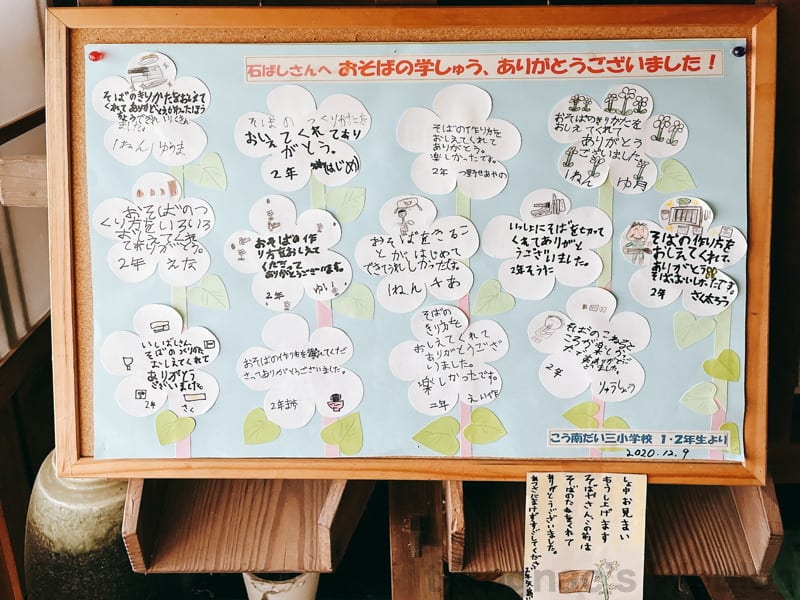 石ばしさんへ おそばの学しゅう、ありがとうございました！
そばのきりかたをおしえて
くれてありがとう
ました。
1ねん ゆうま
そばの つくりかたを
おしえてくれてあり
がとう。
2年 はじめ
そばの作り方を
おしえてくれて
ありがとう。
楽しかったです。
2年
おそばのきりかたを
おしえてくれて
ありがとう
ございました
1ねん ゆ月
おそばのつ
くり方をいろいろ
おしえてく
れてありがとう。
2年
おそばの作
り方をおしえて
くださって
ありがとうございます。
2年 ゆい
おそばをきるこ
とが、はじめて
できてうれしかったです。
1ねん
いっしょにそばを切って
くれてありがと
うございました。
2年
そばの作り方を
おしえてくれて、
ありがとう
そばおいしかったです。
2年 さく太ろう
いしばしさん
そばのつくりかた
おしえてくれて
ありがとう
ございました
2年 さく
おそばの作り方を学んでくだ
さってありがとうございました。
2年
そばの
きり方を
おしえてくれて
ありがとうござ
いました。
楽しかったです。
二年
そばのこねると
ころが楽しく、
2年 りゅうしょう
こう南だい三小学校 1・2年生より
2020.12.9
しょ中お見まい
もうし上げます
そばやさん、この前は
そばのたねをくれて
ありがとうございました。